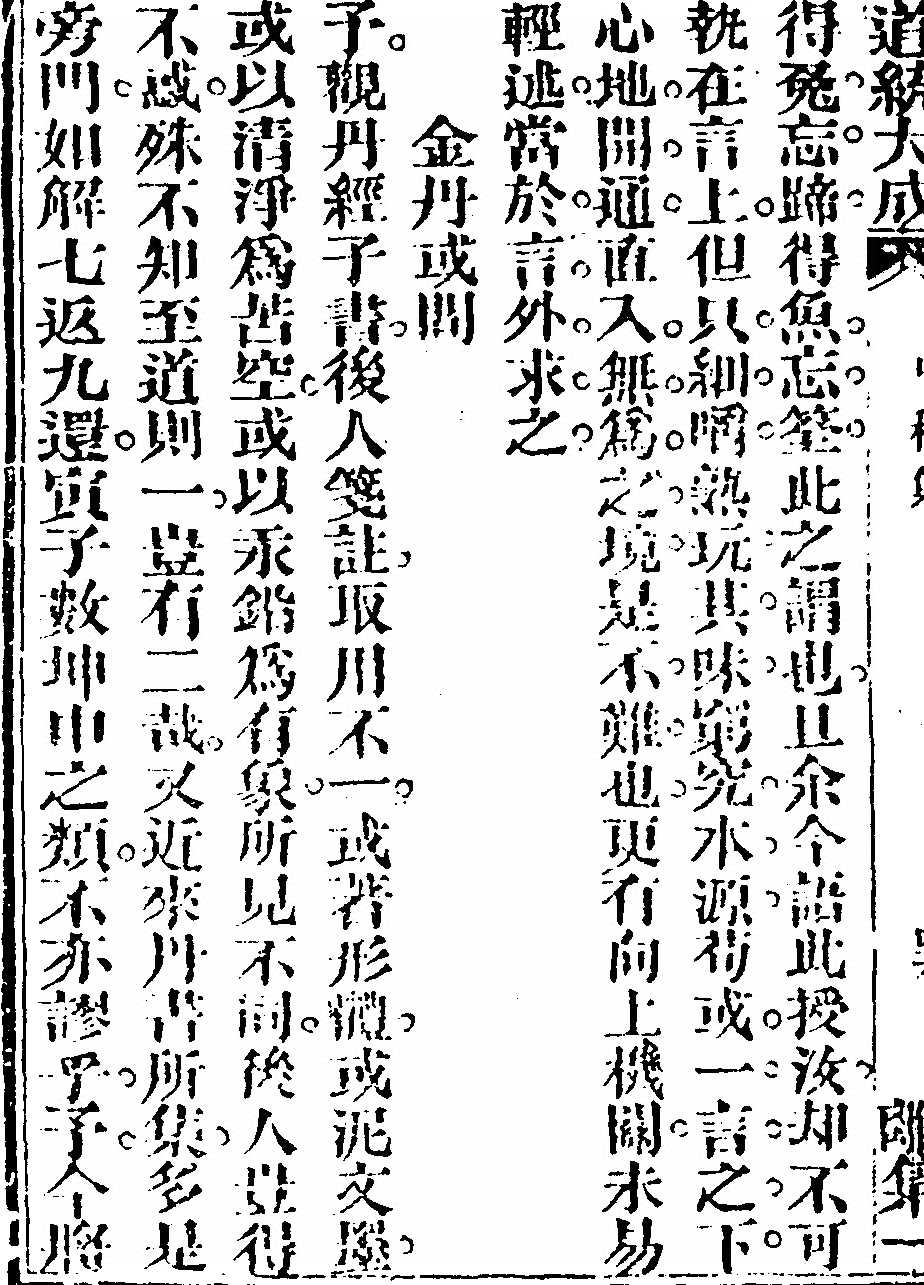 道統大成
得兔忘蹄得魚忘筌此之謂也且余今語此授汝却不可
執在言上但只細嚼熟玩其味窮究本源苟或一言之下
心地開通直入無為之境是不難也更有向上機關未易
輕述當於言外求之
金丹或問
予觀丹經子書後人箋註取用不一或著形體或泥文墨
或以清淨為苦空或以汞鉛為有象所見不同後人豈得
不惑殊不知至道則一豈有二哉又近來丹書所集多是
旁門如解七返九還寅子數坤申之類不亦謬乎予今將